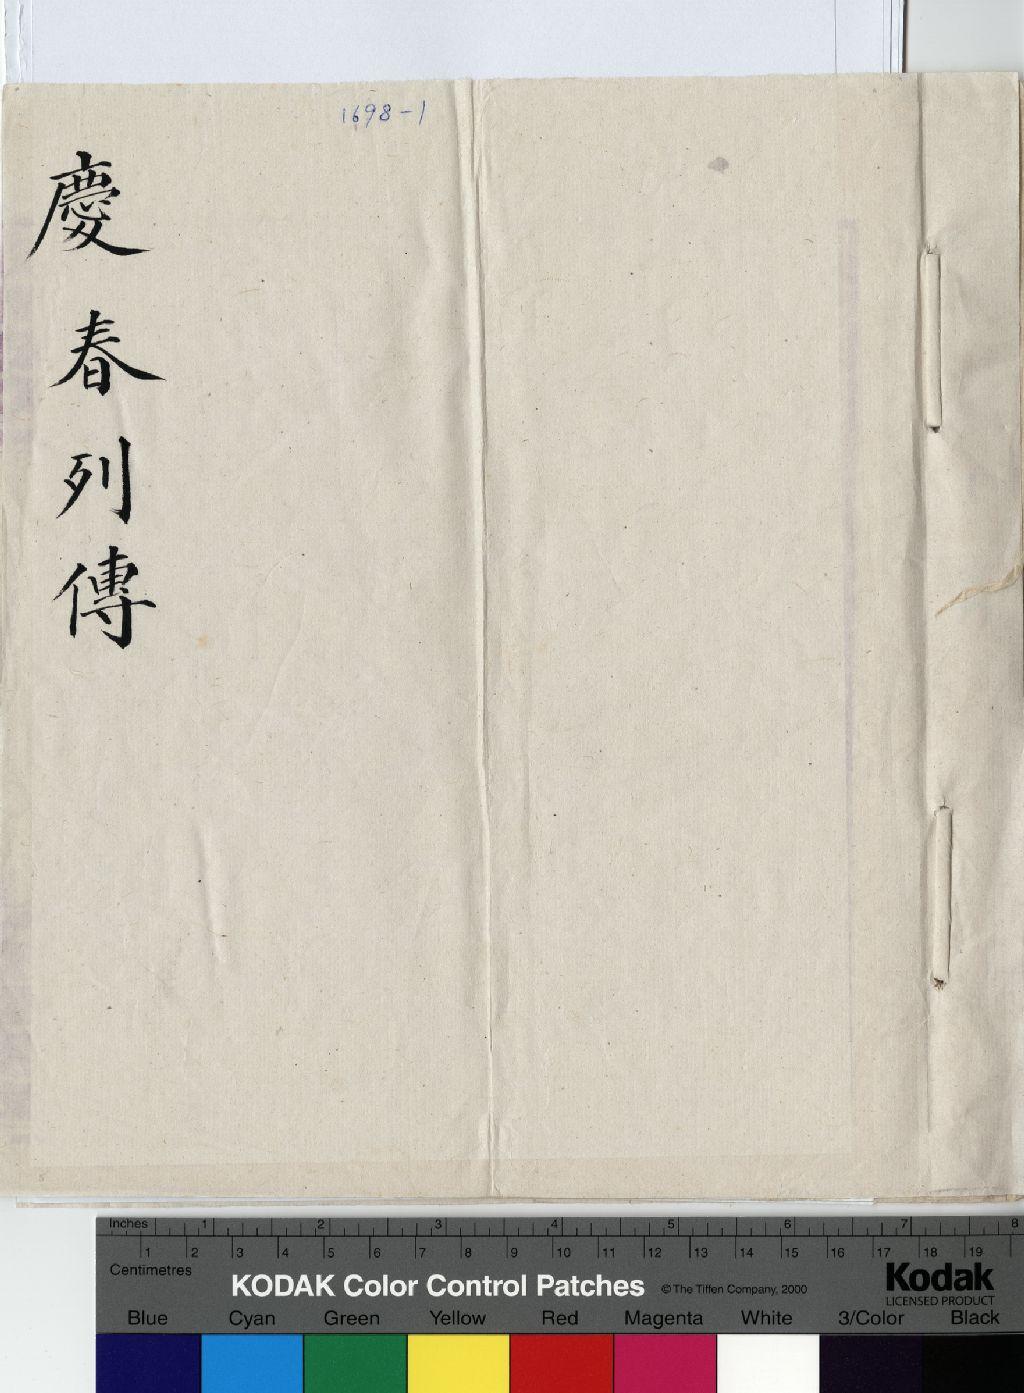 1698-1
慶春列傳
Inches 1 2 3 4 5 6 7 8
1 2 3 4 5 6 7 8 9 10 11 12 13 14 15 16 17 18 19
Centimetres
KODAK Color Control Patches ©The Tiffen Company, 2000 Kodak
LICENSED PRODUCT
Blue Cyan Green Yellow Red Magenta White 3/Color Black